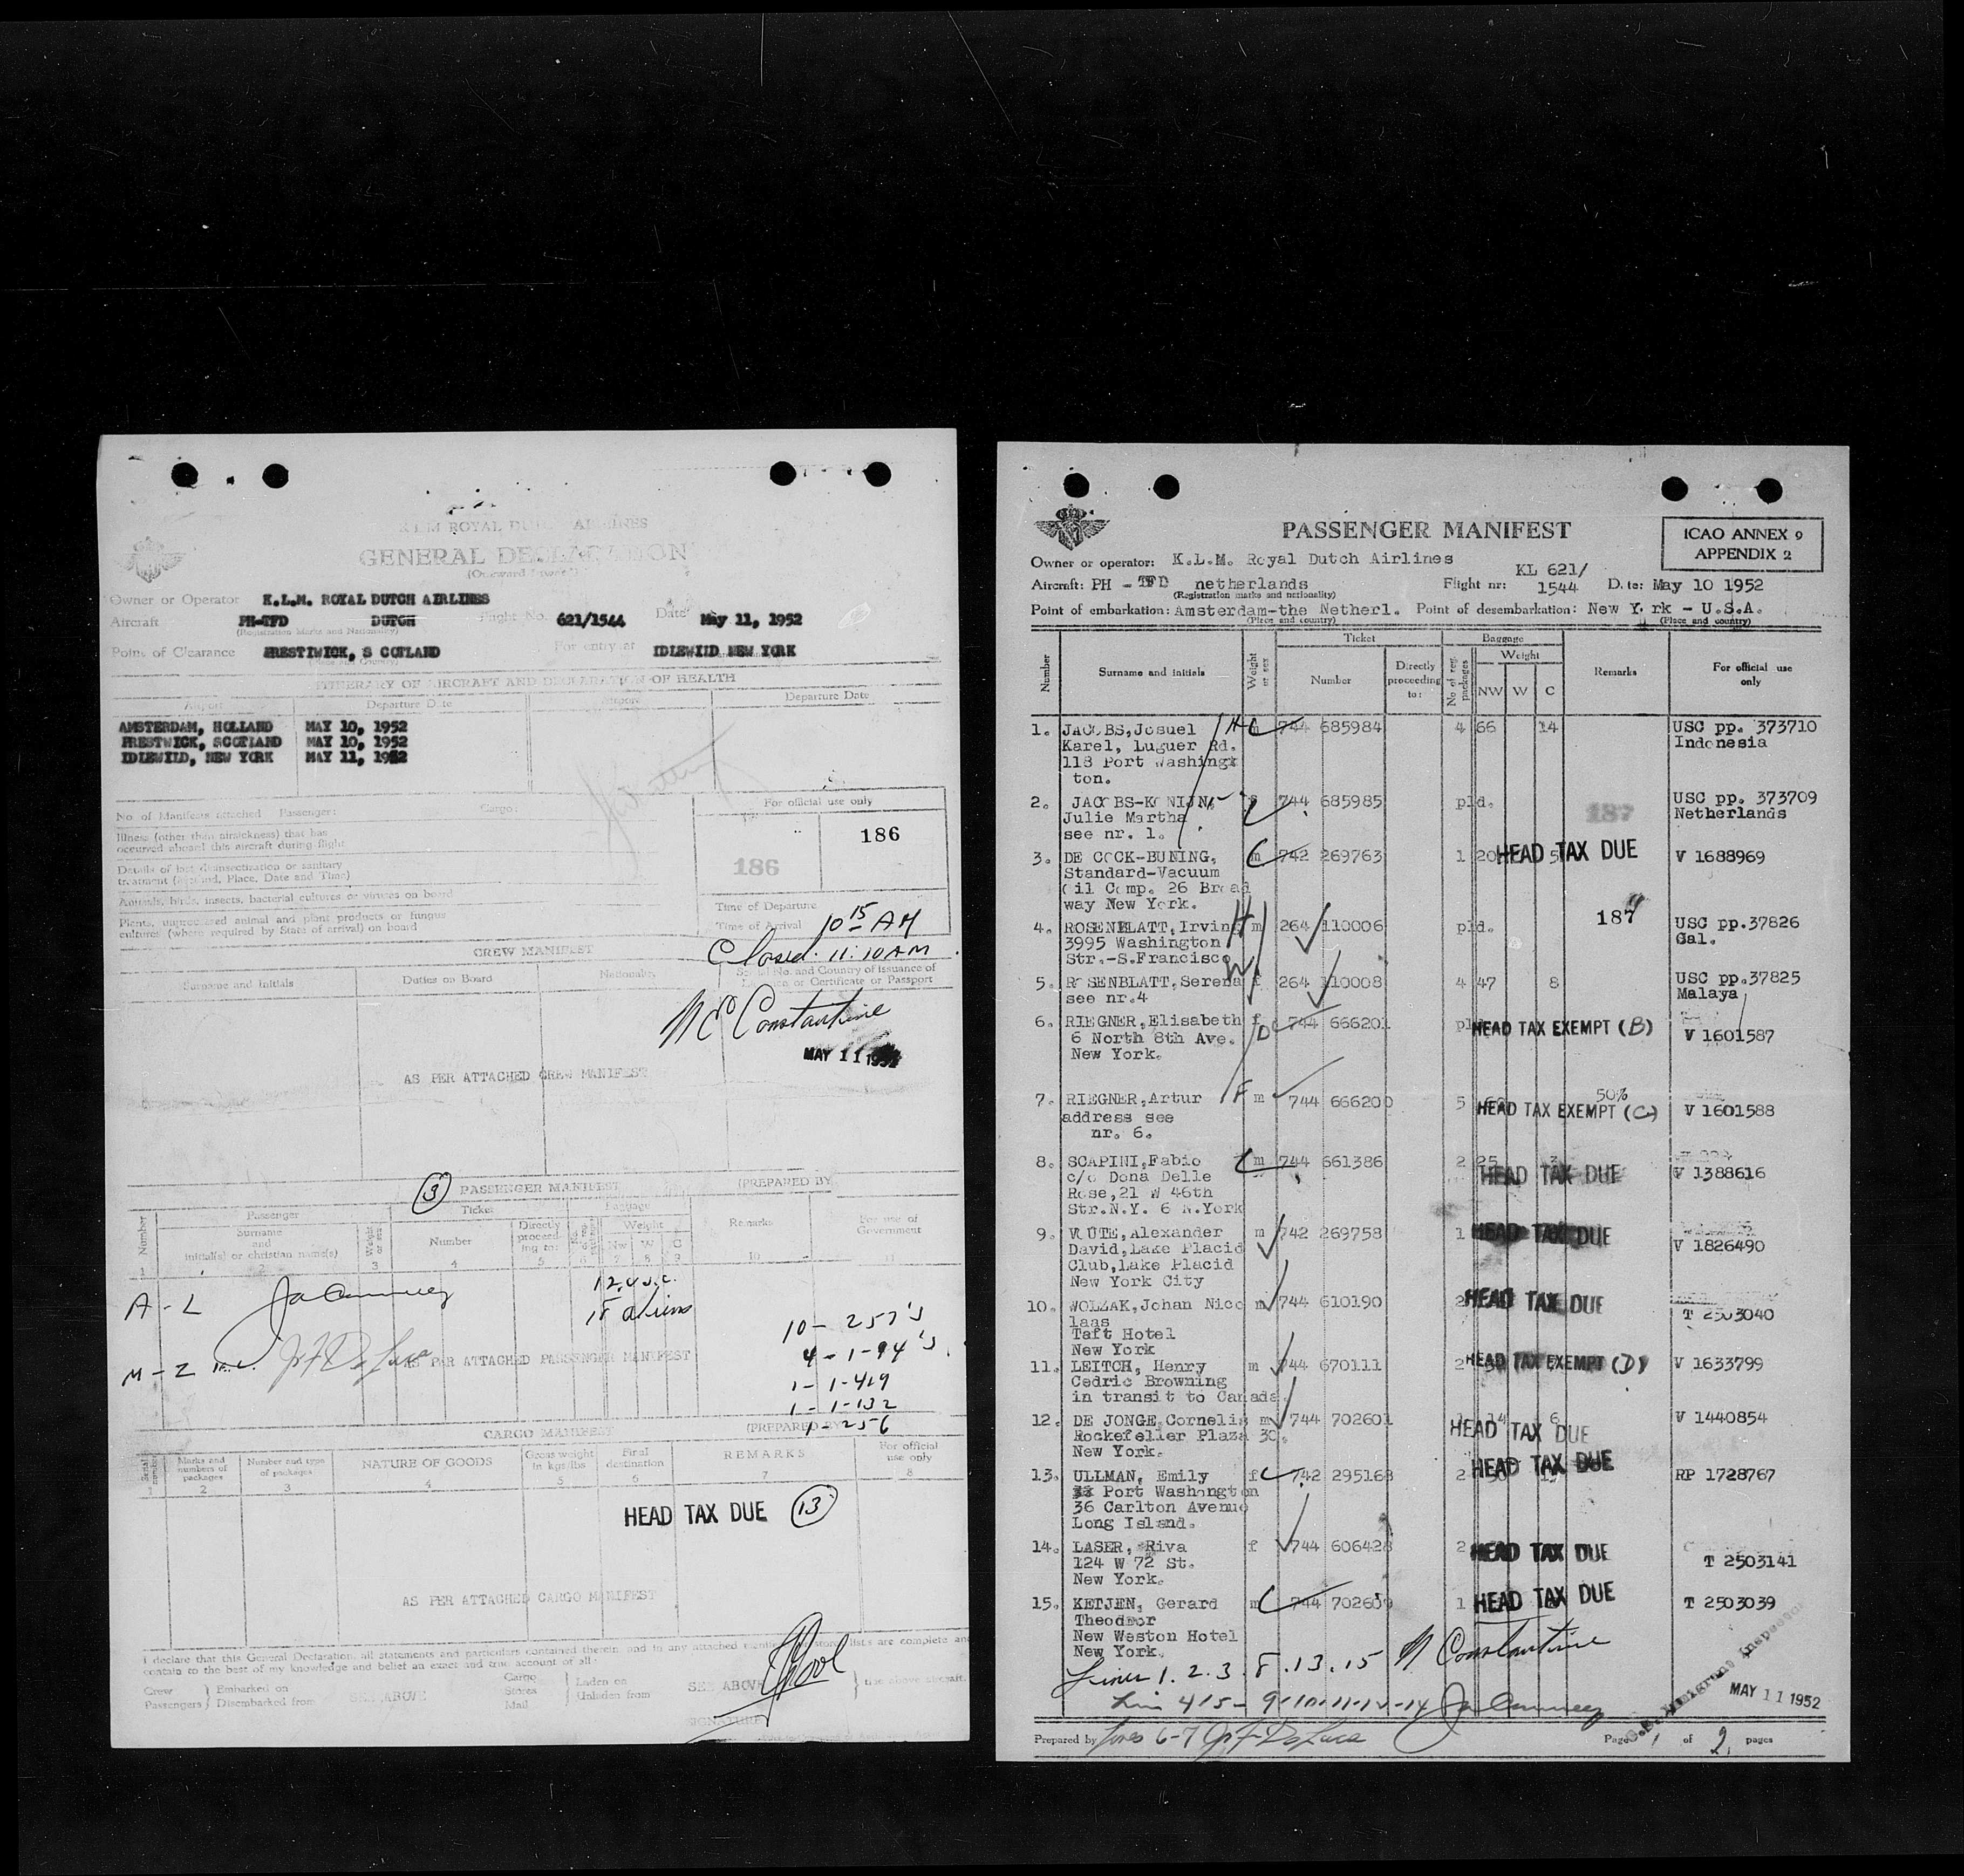 K.L.M. ROYAL DUTCH AIRLINES
GENERAL DECLARATION
Owner or Operator K.L.M. ROYAL DUTCH AIRLINES
Aircraft PH-TFD DUTCH Flight No. 621/1544 Date May 11, 1952
(Registration Marks and Nationality)
Point of Clearance PRESTIWICK, S COTLAND For entry at IDLEWILD NEW YORK
ITINERARY OF AIRCRAFT AND DECLARATION OF HEALTH
Airport Departure Date Airport Departure Date
AMSTERDAM, HOLLAND MAY 10, 1952
PRESTWICK, SCOTLAND MAY 10, 1952
IDLEWILD, NEW YORK MAY 11, 1952
No. of Manifests attached Passenger: Cargo:
For official use only
Illness (other than airsickness) that has
occurred aboard this aircraft during flight
186
186
Details of last disinsectization or sanitary
treatment (Method, Place, Date and Time)
Animals, birds, insects, bacterial cultures or viruses on board
Plants, unprocessed animal and plant products or fungus
cultures (where required by State of arrival) on board
Time of Departure
Time of Arrival 10 15 AM
Closed 11:10 AM
CREW MANIFEST
Surname and Initials Duties on Board Nationality Serial No. and Country of issuance of
License or Certificate or Passport
N E Constantine
MAY 11 1952
AS PER ATTACHED CREW MANIFEST
3 PASSENGER MANIFEST (PREPARED BY
Number Passenger Ticket Baggage Remarks For use of
Government
Surname
and
initial(s) or christian name(s) Weight or sex Number Directly
proceed-
ing to: Weight
Nw W C
1 2 3 4 5 6 7 8 9 10 11
A - L
12 U.S.C.
15 aliens
10 - 257's
4 - 1-94's
M - Z
AS PER ATTACHED PASSENGER MANIFEST
1 - 1-419
1 - 1-132
1 - 256
CARGO MANIFEST (PREPARED BY
Serial number Marks and
numbers of
packages Number and type
of packages NATURE OF GOODS Gross weight
in kgs/lbs Final
destination REMARKS For official
use only
1 2 3 4 5 6 7 8
HEAD TAX DUE 13
AS PER ATTACHED CARGO MANIFEST
I declare that this General Declaration, all statements and particulars contained therein and in any attached manifests, stores lists are complete and
contain to the best of my knowledge and belief an exact and true account of all:
Crew
Passengers } Embarked on
Disembarked from SEE ABOVE Cargo
Stores
Mail } Laden on
Unladen from SEE ABOVE } the above aircraft.
SIGNATURE
PASSENGER MANIFEST
ICAO ANNEX 9
APPENDIX 2
Owner or operator: K.L.M. Royal Dutch Airlines
Aircraft: PH - TFD netherlands Flight nr: KL 621/
1544 Date: May 10 1952
(Registration marks and nationality)
Point of embarkation: Amsterdam-the Netherl. Point of desembarkation: New Y rk - U.S.A.
(Place and country) (Place and country)
Number Surname and initials Weight or sex Ticket Baggage Remarks For official use
only
Number Directly
proceeding
to: No of reg. packages Weight
NW W C
1. JACOBS, Josuel m 744 685984 4 66 14 USC pp. 373710
Karel, Luguer Rd. Indonesia
118 Port Washingt
ton.
2. JACOBS-KONIJN, f 744 685985 pld. USC pp. 373709
Julie Martha 187 Netherlands
see nr. 1.
3. DE COCK-BUNING, m 742 269763 1 20 5 HEAD TAX DUE V 1688969
Standard-Vacuum
Oil Comp. 26 Broad
way New York.
187
4. ROSENBLATT, Irving m 264 110006 pld. USC pp.37826
3995 Washington Cal.
Str.-S.Francisco
5. ROSENBLATT, Serena f 264 110008 4 47 8 USC pp.37825
see nr.4 Malaya
6. RIEGNER, Elisabeth f 744 666201 pld. HEAD TAX EXEMPT (B) V 1601587
6 North 8th Ave.
New York.
50%
7. RIEGNER, Artur m 744 666200 5 HEAD TAX EXEMPT (C) V 1601588
address see
nr. 6.
8. SCAPINI, Fabio m 744 661386 2 25 HEAD TAX DUE V 1388616
c/o Dona Delle
Rose, 21 W 46th
Str.N.Y. 6 N.York
9. WUTE, Alexander m 742 269758 1 HEAD TAX DUE V 1826490
David, Lake Placid
Club, Lake Placid
New York City
10. WOLZAK, Johan Nico m 744 610190 2 HEAD TAX DUE T 2503040
laas
Taft Hotel
New York
11. LEITCH, Henry m 744 670111 2 HEAD TAX EXEMPT (D) V 1633799
Cedric Browning
in transit to Canada.
12. DE JONGE, Cornelis m 744 702601 14 6 HEAD TAX DUE V 1440854
Rockefeller Plaza 30.
New York.
13. ULLMAN, Emily f 742 295168 2 HEAD TAX DUE RP 1728767
Port Washongton
36 Carlton Avenue
Long Island.
14. LASER, Riva f 744 606428 2 HEAD TAX DUE T 2503141
124 W 72 St.
New York.
15. KETJEN, Gerard m 744 702609 1 HEAD TAX DUE T 2503039
Theodoor
New Weston Hotel
New York.
Lines 1. 2. 3. 8. 13. 15 N Constantine
Lin 4 1 5 - 9-10-11-12-14
U.S. Immigrant Inspector
MAY 11 1952
Prepared by Lines 6-7 Page 1 of 2 pages